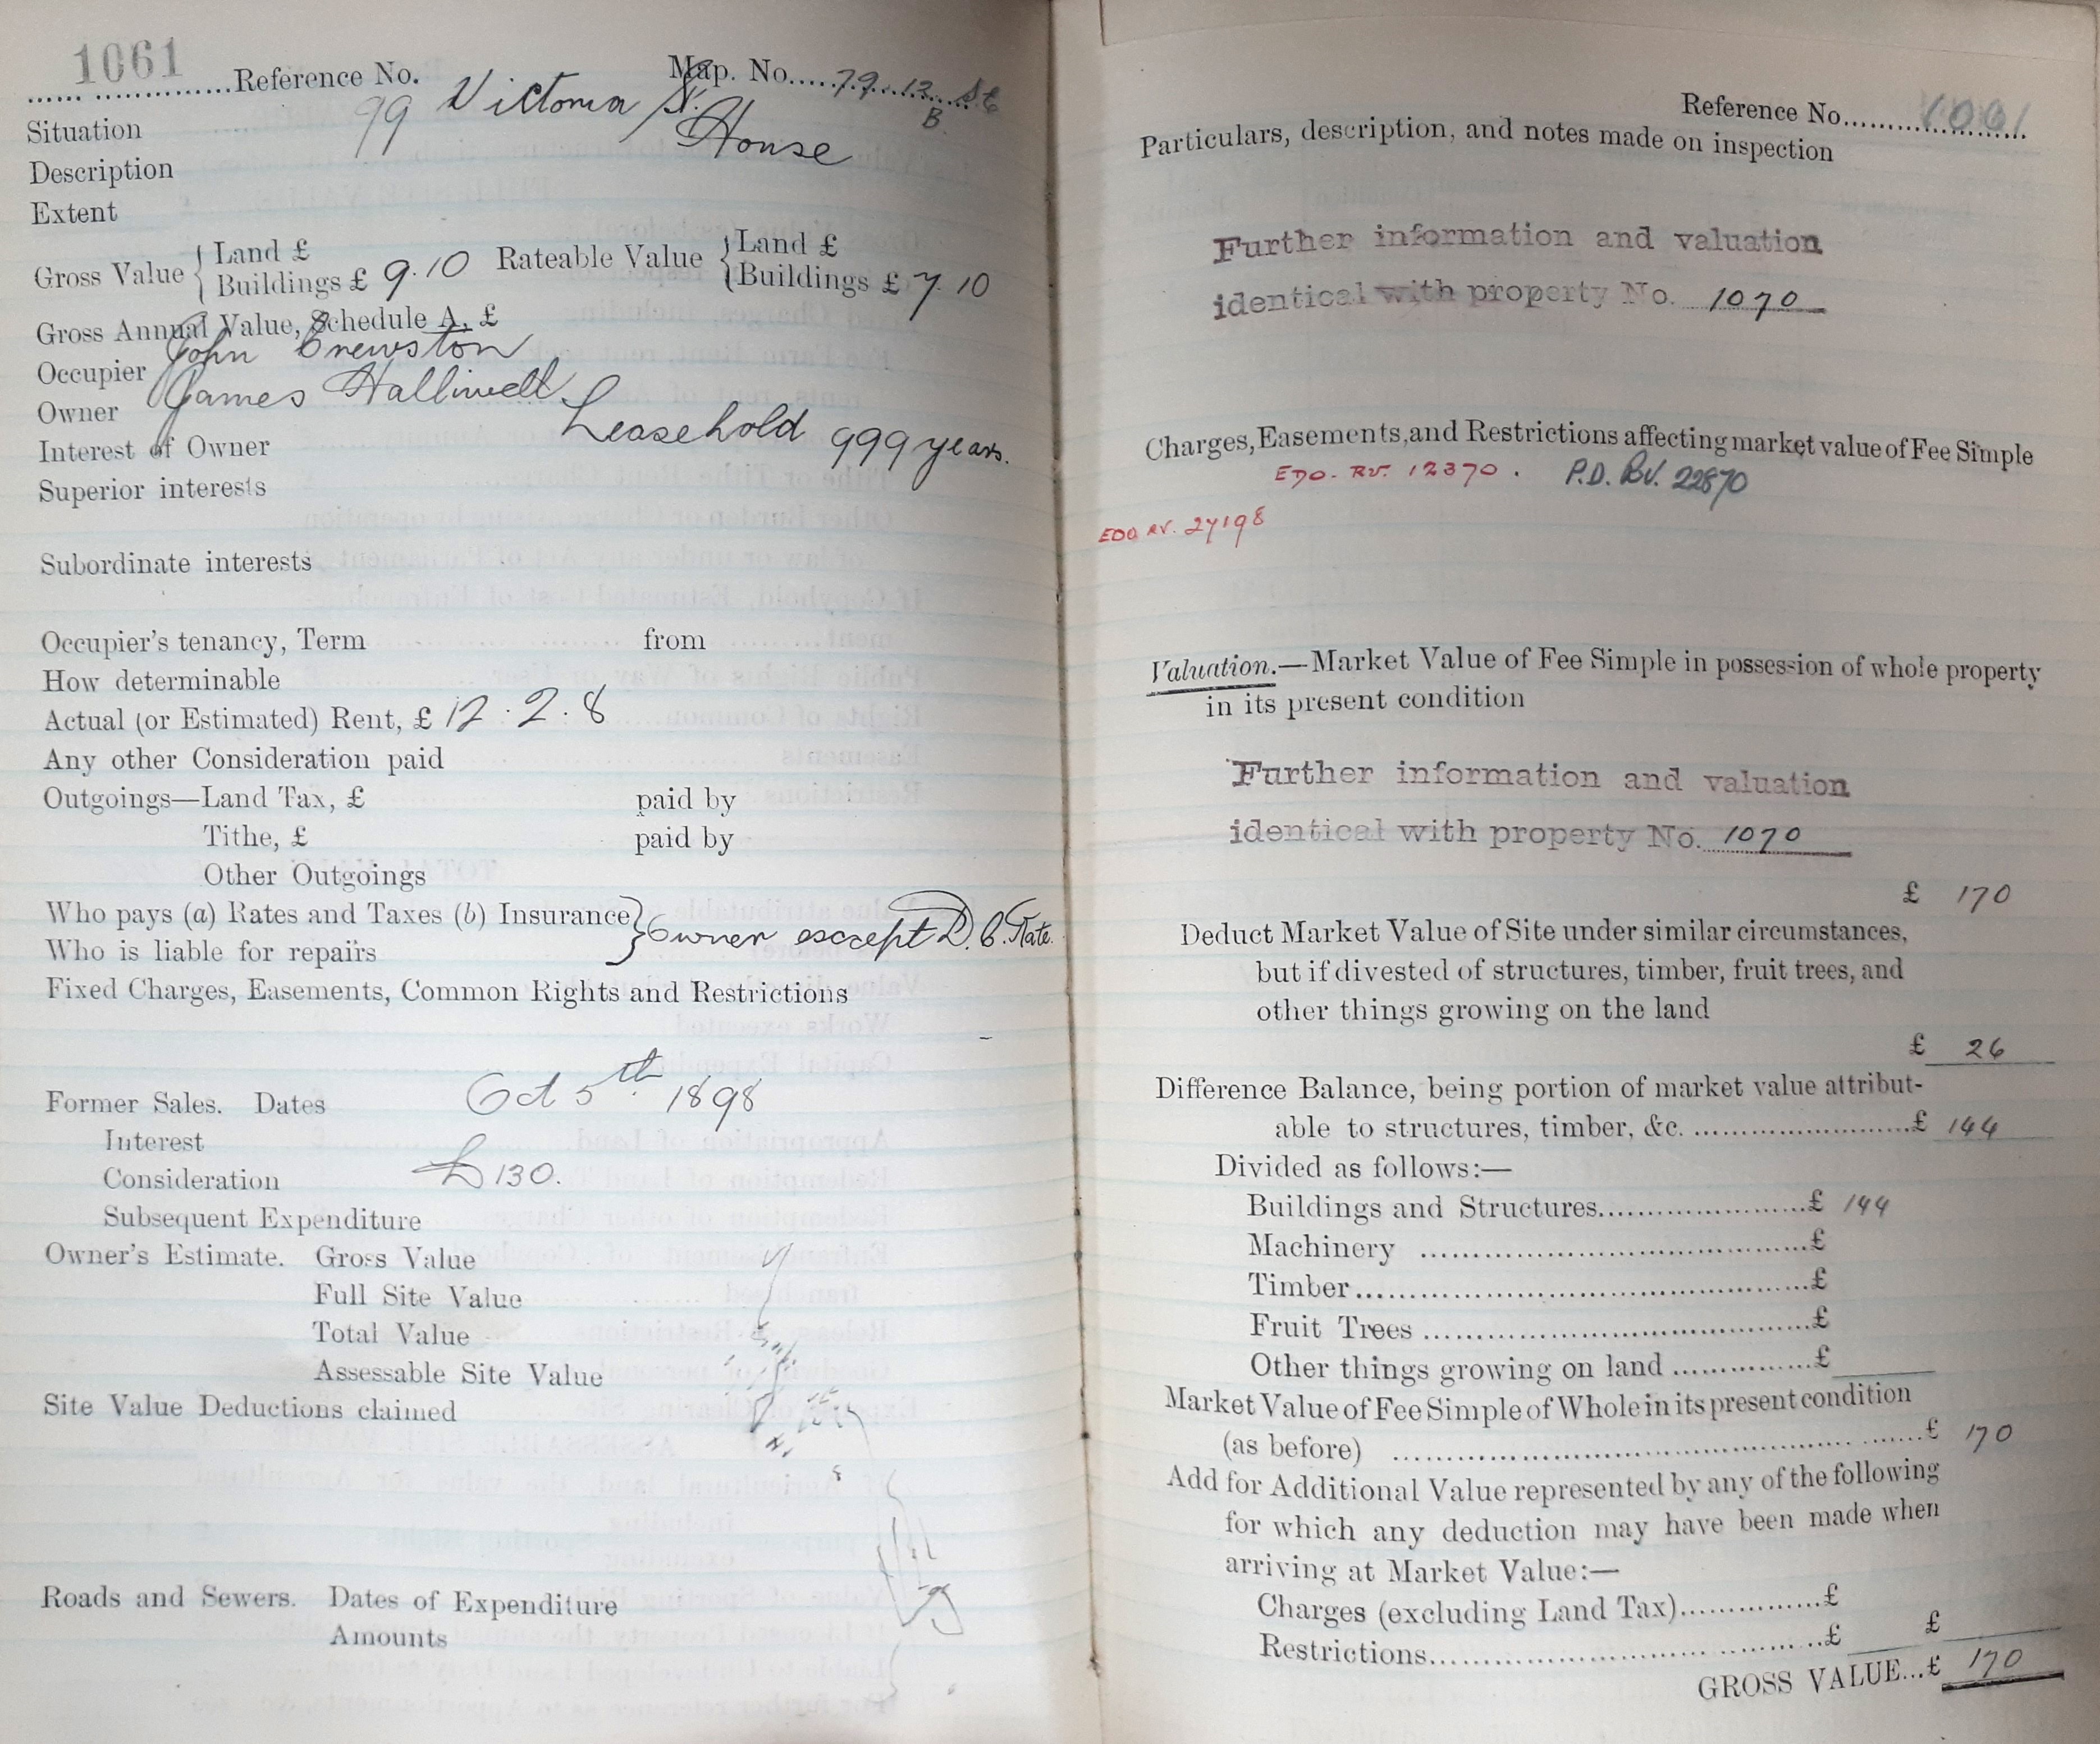 1061 Reference No. Map. No. 79.13 
B
Situation 99 Victoria St.
Description House
Extent
Gross Value { Land £ Rateable Value { Land £
Buildings £ 9.10 Buildings £ 7.10
Gross Annual Value, Schedule A, £
Occupier John Crewston
Owner James Halliwell
Interest of Owner Leasehold 999 years.
Superior interests
Subordinate interests
Occupier's tenancy, Term from
How determinable
Actual (or Estimated) Rent, £ 12.2.8
Any other Consideration paid
Outgoings—Land Tax, £ paid by
Tithe, £ paid by
Other Outgoings
Who pays (a) Rates and Taxes (b) Insurance }
Who is liable for repairs } Owner except D. C. Rate.
Fixed Charges, Easements, Common Rights and Restrictions
Former Sales. Dates Oct 5th 1898
Interest
Consideration £130.
Subsequent Expenditure
Owner's Estimate. Gross Value
Full Site Value
Total Value
Assessable Site Value
Site Value Deductions claimed
Roads and Sewers. Dates of Expenditure
Amounts
Reference No. 1061
Particulars, description, and notes made on inspection
Further information and valuation
identical with property No. 1070
Charges, Easements, and Restrictions affecting market value of Fee Simple
RV. 12370. P.D. RV. 22870
RV. 27198
Valuation.—Market Value of Fee Simple in possession of whole property
in its present condition
Further information and valuation
identical with property No. 1070
£ 170
Deduct Market Value of Site under similar circumstances,
but if divested of structures, timber, fruit trees, and
other things growing on the land
£ 26
Difference Balance, being portion of market value attribut-
able to structures, timber, &c. £ 144
Divided as follows:—
Buildings and Structures £ 144
Machinery £
Timber £
Fruit Trees £
Other things growing on land £
Market Value of Fee Simple of Whole in its present condition
(as before) £ 170
Add for Additional Value represented by any of the following
for which any deduction may have been made when
arriving at Market Value:—
Charges (excluding Land Tax) £
Restrictions £ £
GROSS VALUE...£ 170